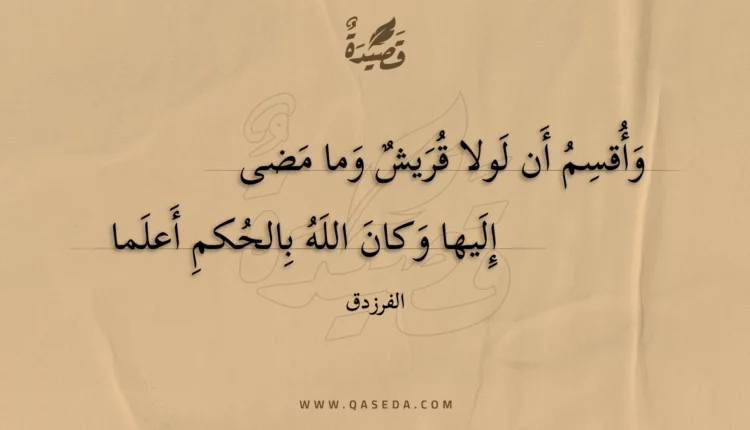 قَصِيدَةٌ
وَأُقسِمُ أَن لَولا قُرَيشٌ وَما مَضى
إِلَيها وَكانَ اللَهُ بِالحُكمِ أَعلَما
الفرزدق
WWW.QASEDA.COM